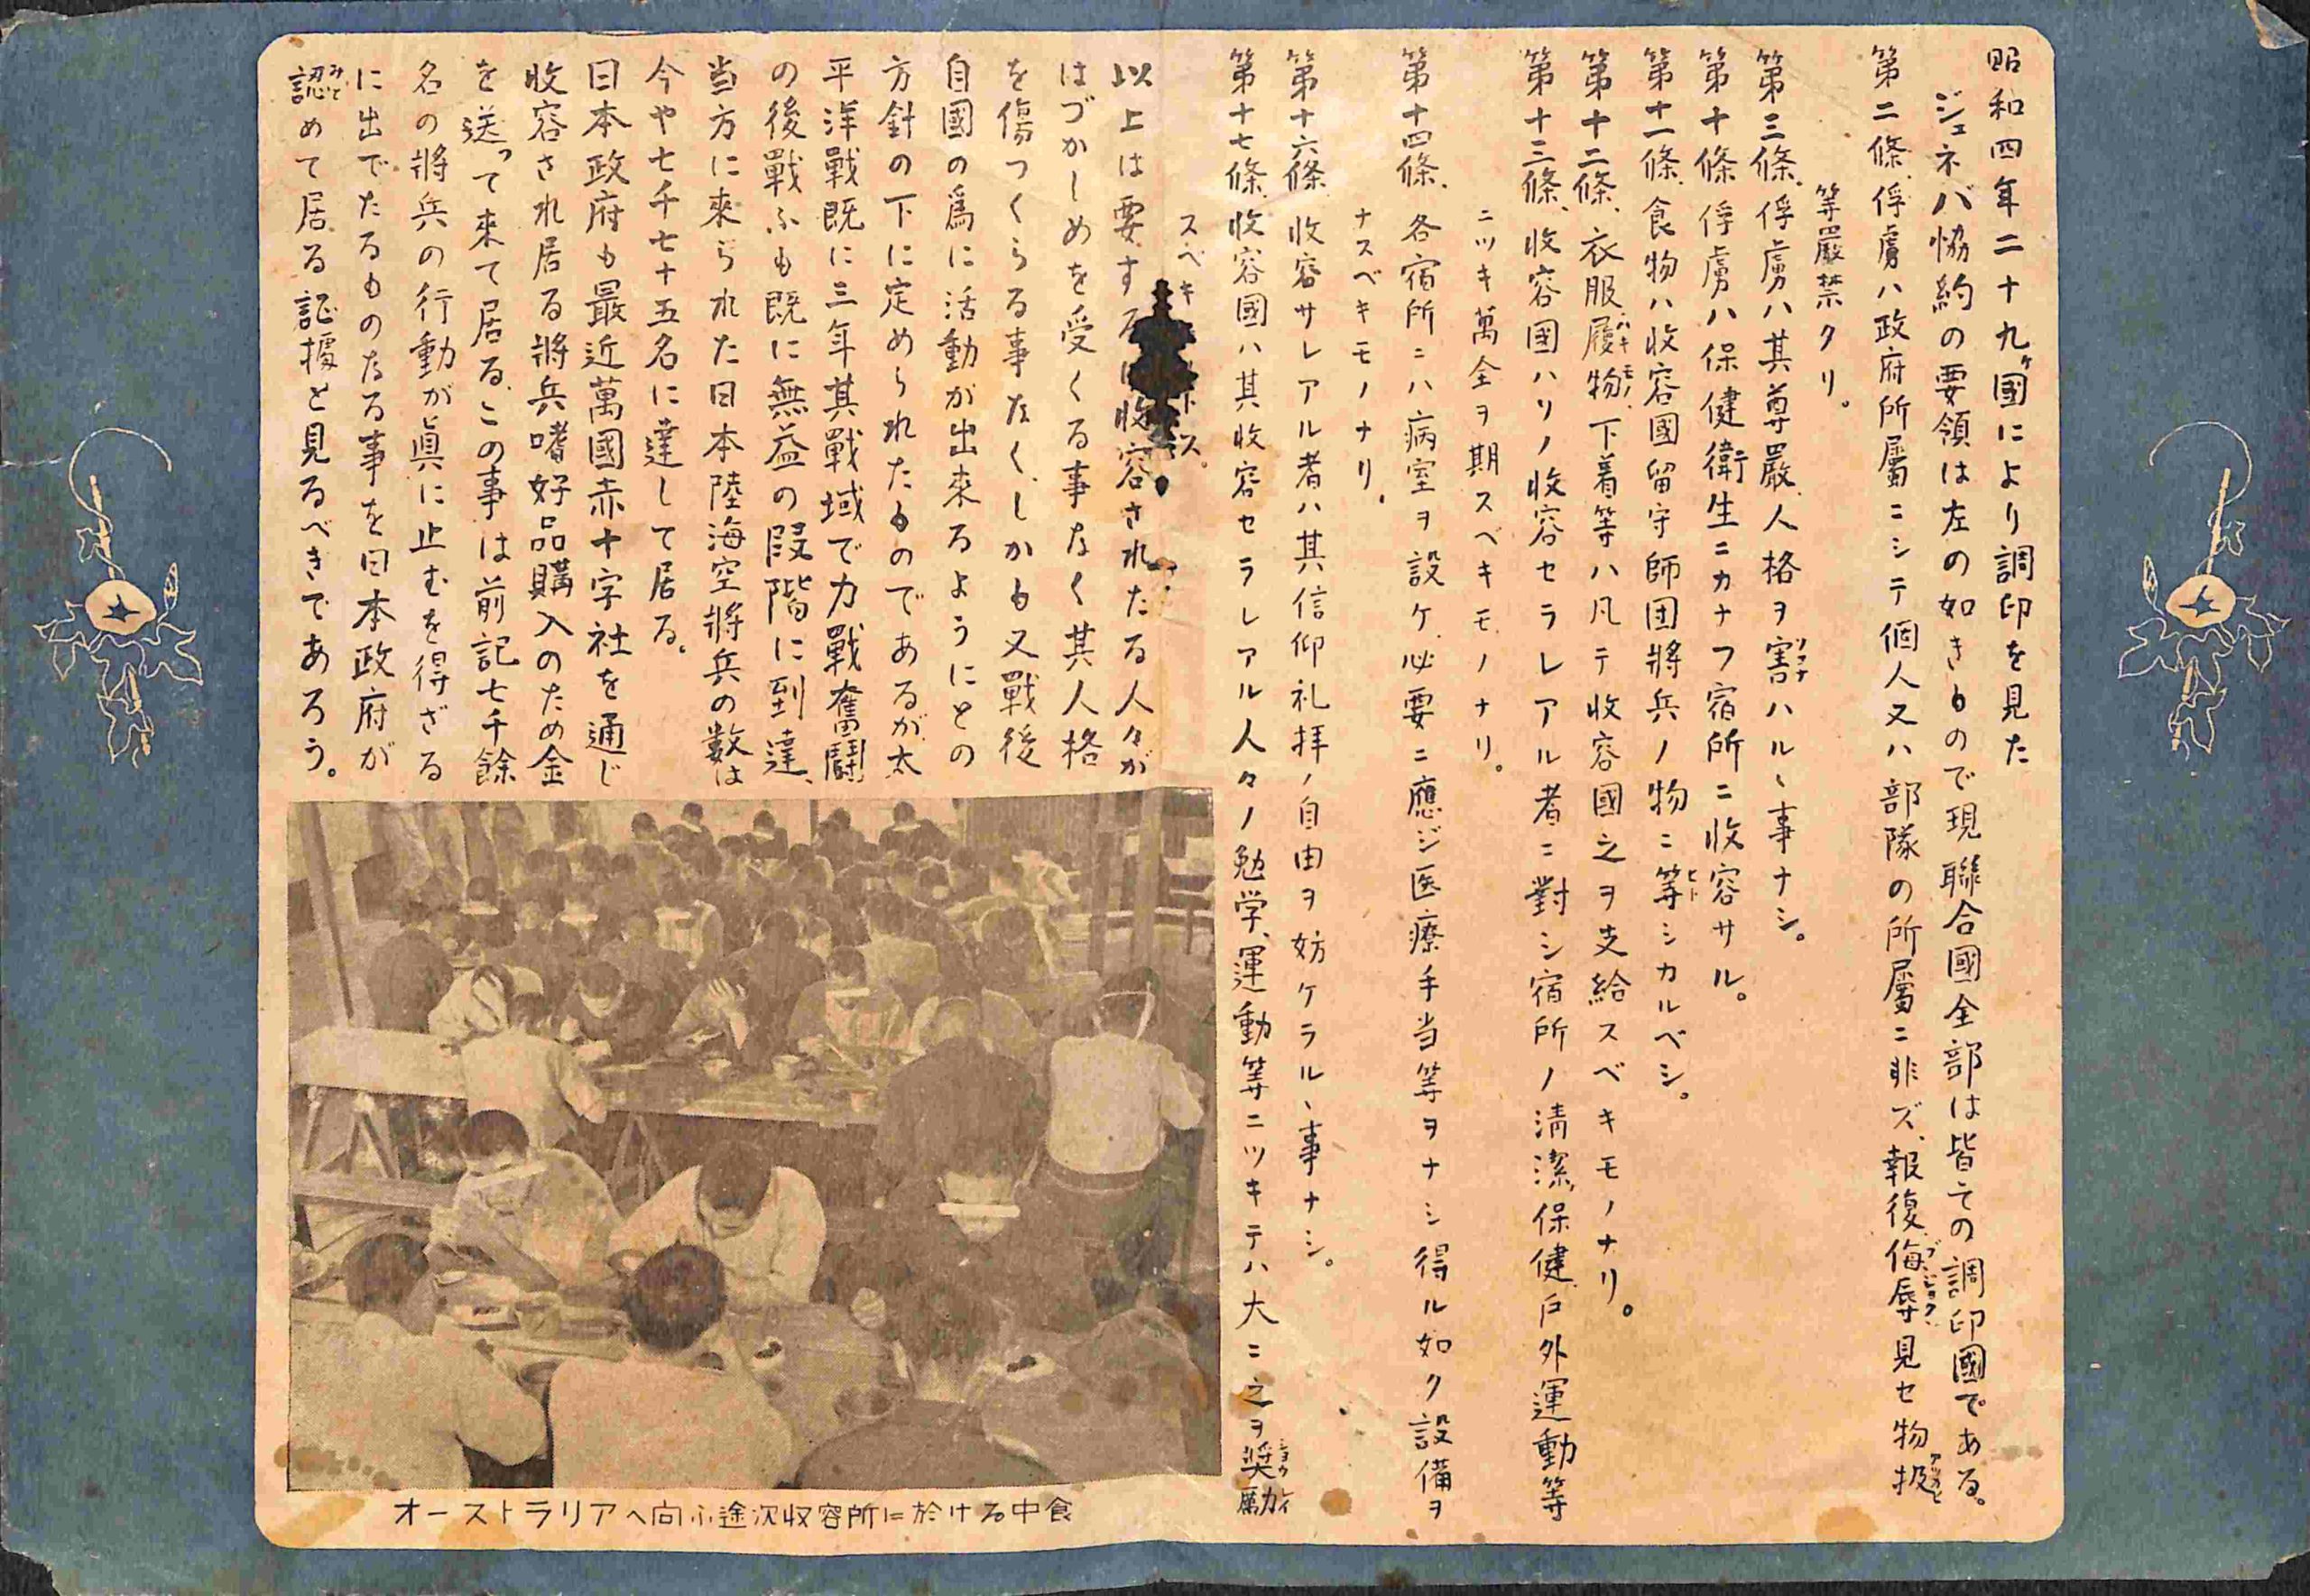 昭和四年二十九ヶ國により調印を見た
ジュネバ協約の要領は左の如きもので現聯合國全部は皆その調印國である。
第二條、俘虜ハ政府所屬ニシテ個人又ハ部隊の所屬ニ非ズ、報復、侮辱、見セ物扱
等嚴禁クリ。
第三條、俘虜ハ其尊嚴、人格ヲ害ハルヽ事ナシ。
第十條、俘虜ハ保健衛生ニカナフ宿所ニ收容サル。
第十一條、食物ハ收容國留守師団將兵ノ物ニ等シカルベシ。
第十二條、衣服、履物、下着等ハ凡テ收容國之ヲ支給スベキモノナリ。
第十三條、收容國ハソノ收容セラレアル者ニ對シ宿所ノ淸潔、保健、戸外運動等
ニツキ萬全ヲ期スベキモノナリ。
第十四條、各宿所ニハ病室ヲ設ケ、必要ニ應ジ医療手当等ヲナシ得ル如ク設備ヲ
ナスベキモノナリ。
第十六條、收容サレアル者ハ其信仰礼拝ノ自由ヲ妨ケラルヽ事ナシ。
第十七條、收容國ハ其收容セラレアル人々ノ勉学、運動等ニツキテハ大ニ之ヲ奬勵
スベキ トス。
以上は要する 收容されたる人々が
はづかしめを受くる事なく其人格
を傷つくらる事なく、しかも又戰後
自國の爲に活動が出來るようにとの
方針の下に定められたものであるが、太
平洋戰既に三年其戰域で力戰奮鬪
の後戰ふも既に無益の段階に到達、
当方に來られた日本陸海空將兵の数は
今や七千七十五名に達して居る。
日本政府も最近萬國赤十字社を通じ
收容され居る將兵嗜好品購入のため金
を送って来て居る、この事は前記七千餘
名の將兵の行動が眞に止むを得ざる
に出でたるものなる事を日本政府が
認めて居る証據と見るべきであろう。
オーストラリアへ向ふ途次収容所に於ける中食